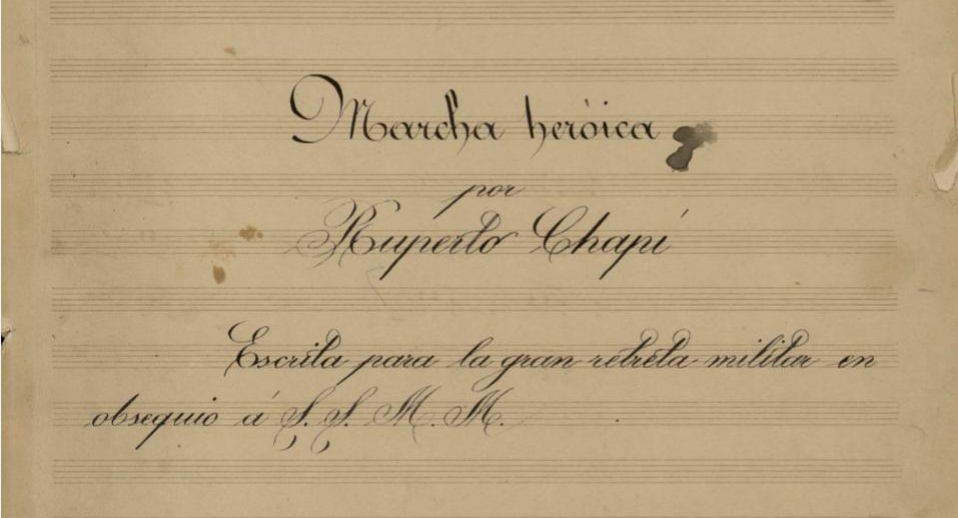 Marcha heròica
por
Ruperto Chapí
Escrita para la gran retreta militar en
obsequio á S. S. M. M.